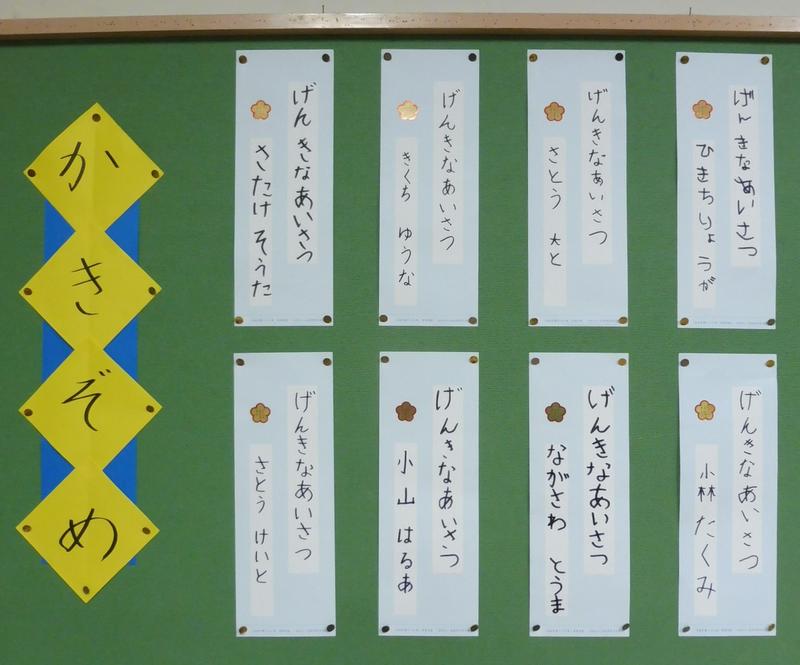 かきぞめ
げんきなあいさつ
ひきちりょうが
げんきなあいさつ
さとう 大と
げんきなあいさつ
きくち ゆうな
げんきなあいさつ
さたけ そうた
げんきなあいさつ
小林 たくみ
げんきなあいさつ
ながさわ とうま
げんきなあいさつ
小山 はるあ
げんきなあいさつ
さとう けいと